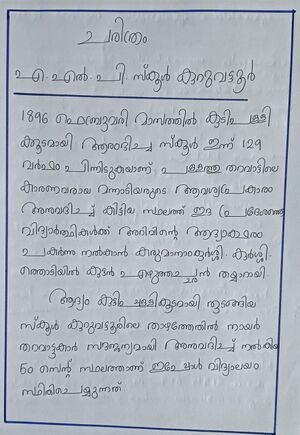 ചരിത്രം
എ.എൽ.പി.സ്കൂൾ കുറുവട്ടൂർ
1896 ഫെബ്രുവരി മാസത്തിൽ കുടിപ്പള്ളി
ക്കൂടമായി ആരംഭിച്ച സ്കൂൾ ഇന്ന് 129
വർഷം പിന്നിടുകയാണ്. ചള്ളത്ത തറവാട്ടിലെ
കാരണവരായ മന്നാടിയരുടെ ആവശ്യപ്രകാരം
അനുവദിച്ച് കിട്ടിയ സ്ഥലത്ത് ഈ പ്രദേശത്തെ
വിദ്യാർത്ഥികൾക്ക് അറിവിന്റെ ആദ്യാക്ഷരം
പകർന്നു നൽകാൻ കരുമാനാംകുർശ്ശി കുർശ്ശി
ത്തൊടിയിൽ കുട്ടൻ എഴുത്തച്ഛൻ തയ്യാറായി.
ആദ്യം കുടിപ്പള്ളിക്കൂടമായി തുടങ്ങിയ
സ്കൂൾ കുറുവട്ടൂരിലെ താഴത്തേതിൽ നായർ
തറവാട്ടുകാർ സൗജന്യമായി അനുവദിച്ച് നൽകിയ
50 സെന്റ് സ്ഥലത്താണ് ഇപ്പോൾ വിദ്യാലയം
സ്ഥിതിചെയ്യുന്നത്